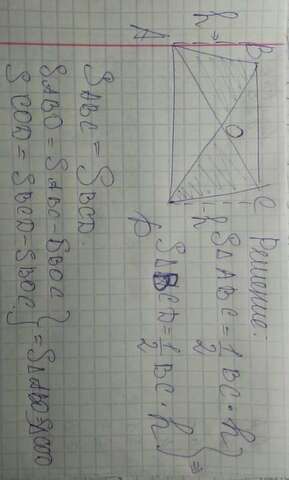 A
B
C
D
O
h
h
Решение:
S△ABC = 1/2 BC · h
S△BCD = 1/2 BC · h } ⇒
SABC = SBCD.
SABO = SABC - SBOC
SCOD = SBCD - SBOC } = S△ABO = S△COD